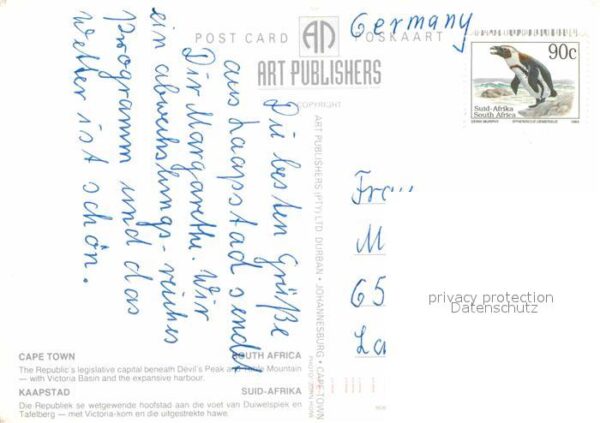 POST CARD
AN
POSKAART
Germany
ART PUBLISHERS
90c
Suid-Afrika
South Africa
COPYRIGHT
ART PUBLISHERS (PTY) LTD DURBAN • JOHANNESBURG • CAPE TOWN
Die besten Grüße
aus Kaapstad sendet
Dir Margarethe. Wir
ein abwechslungs-reiches
Programm und das
Wetter ist schön.
M
65
privacy protection
Datenschutz
CAPE TOWN
SOUTH AFRICA
The Republic's legislative capital beneath Devil's Peak and Table Mountain
— with Victoria Basin and the expansive harbour.
KAAPSTAD
SUID-AFRIKA
Die Republiek se wetgewende hoofstad aan die voet van Duiwelspiek en
Tafelberg — met Victoria-kom en die uitgestrekte hawe.